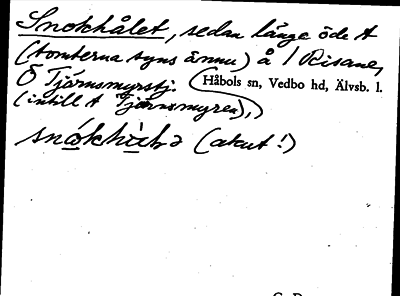 Snokhålet, sedan länge öde t
(tomterna syns ännu) å 1 Risane,
Ö Tjärnsmyrstj. Håbols sn, Vedbo hd, Älvsb. l.
(intill t Tjärnsmyren),
(akut!)